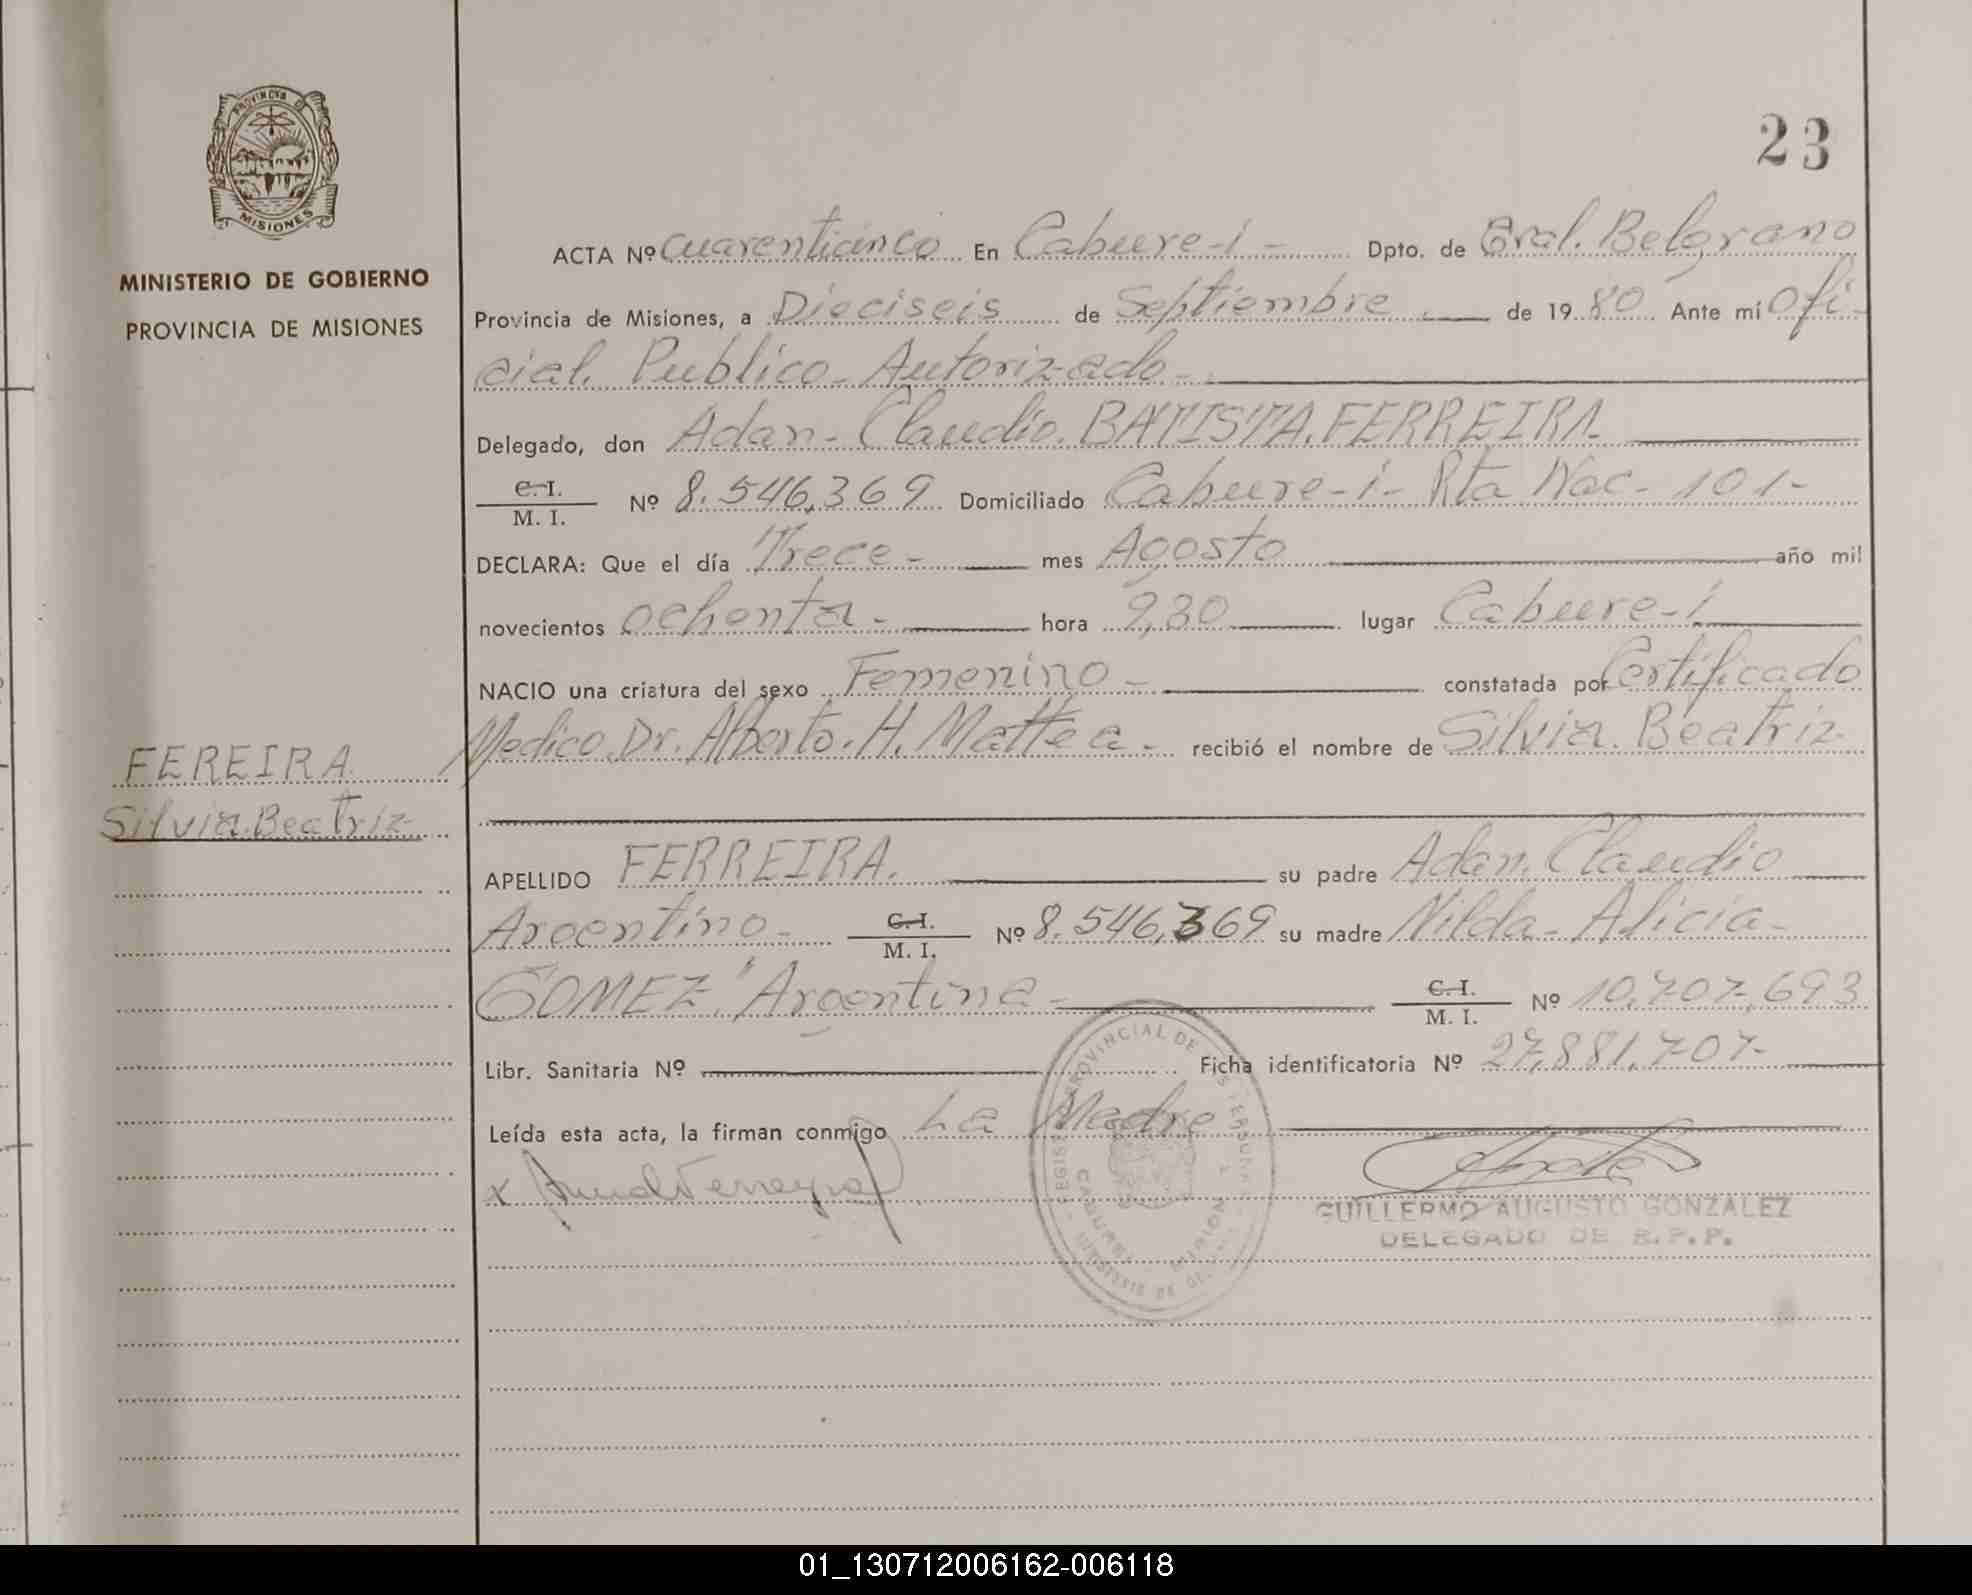 23
PROVINCIA DE
MISIONES
MINISTERIO DE GOBIERNO
PROVINCIA DE MISIONES
FEREIRA
Silvia Beatriz
ACTA Nº Cuarenticinco En Cabure-i - Dpto. de Gral. Belgrano
Provincia de Misiones, a Dieciseis de Septiembre de 1980 Ante mí Ofi-
cial Publico Autorizado -
Delegado, don Adan Claudio BATISTA FERREIRA
C. I.
M. I. Nº 8.546,369 Domiciliado Cabure-i - Rta Nac - 101 -
DECLARA: Que el día Trece - mes Agosto año mil
novecientos ochenta - hora 9,30 lugar Cabure-i
NACIO una criatura del sexo Femenino - constatada por Certificado
Medico Dr. Alberto H. Mattea - recibió el nombre de Silvia Beatriz
APELLIDO FERREIRA. su padre Adan Claudio
Argentino - C. I. M. I. Nº 8.546,369 su madre Nilda - Alicia -
GOMEZ Argentina - C. I. M. I. Nº 10,707,693
Libr. Sanitaria Nº Ficha identificatoria Nº 27,881,707-
Leída esta acta, la firman conmigo La Madre
x
PROVINCIAL DE
GUILLERMO AUGUSTO GONZALEZ
DELEGADO DE R.P.P.
01_130712006162-006118